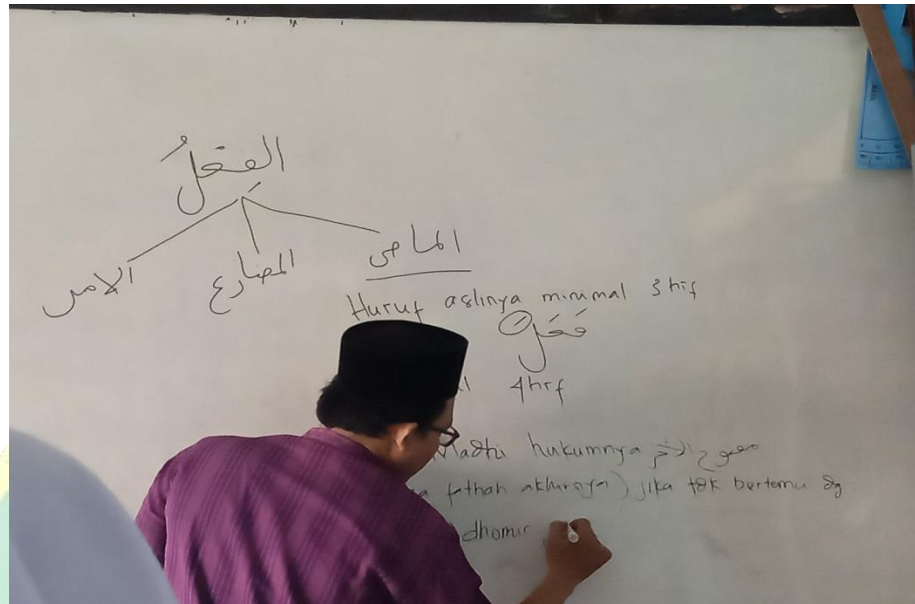 الفعلُ
الماضى المضارع الامر
Huruf aslinya minimal 3 hrf
فَعَلَ
4 hrf
Madhi hukumnya مفتوح الأخر
fathah akhirnya) jika tdk bertemu dg
dhomir